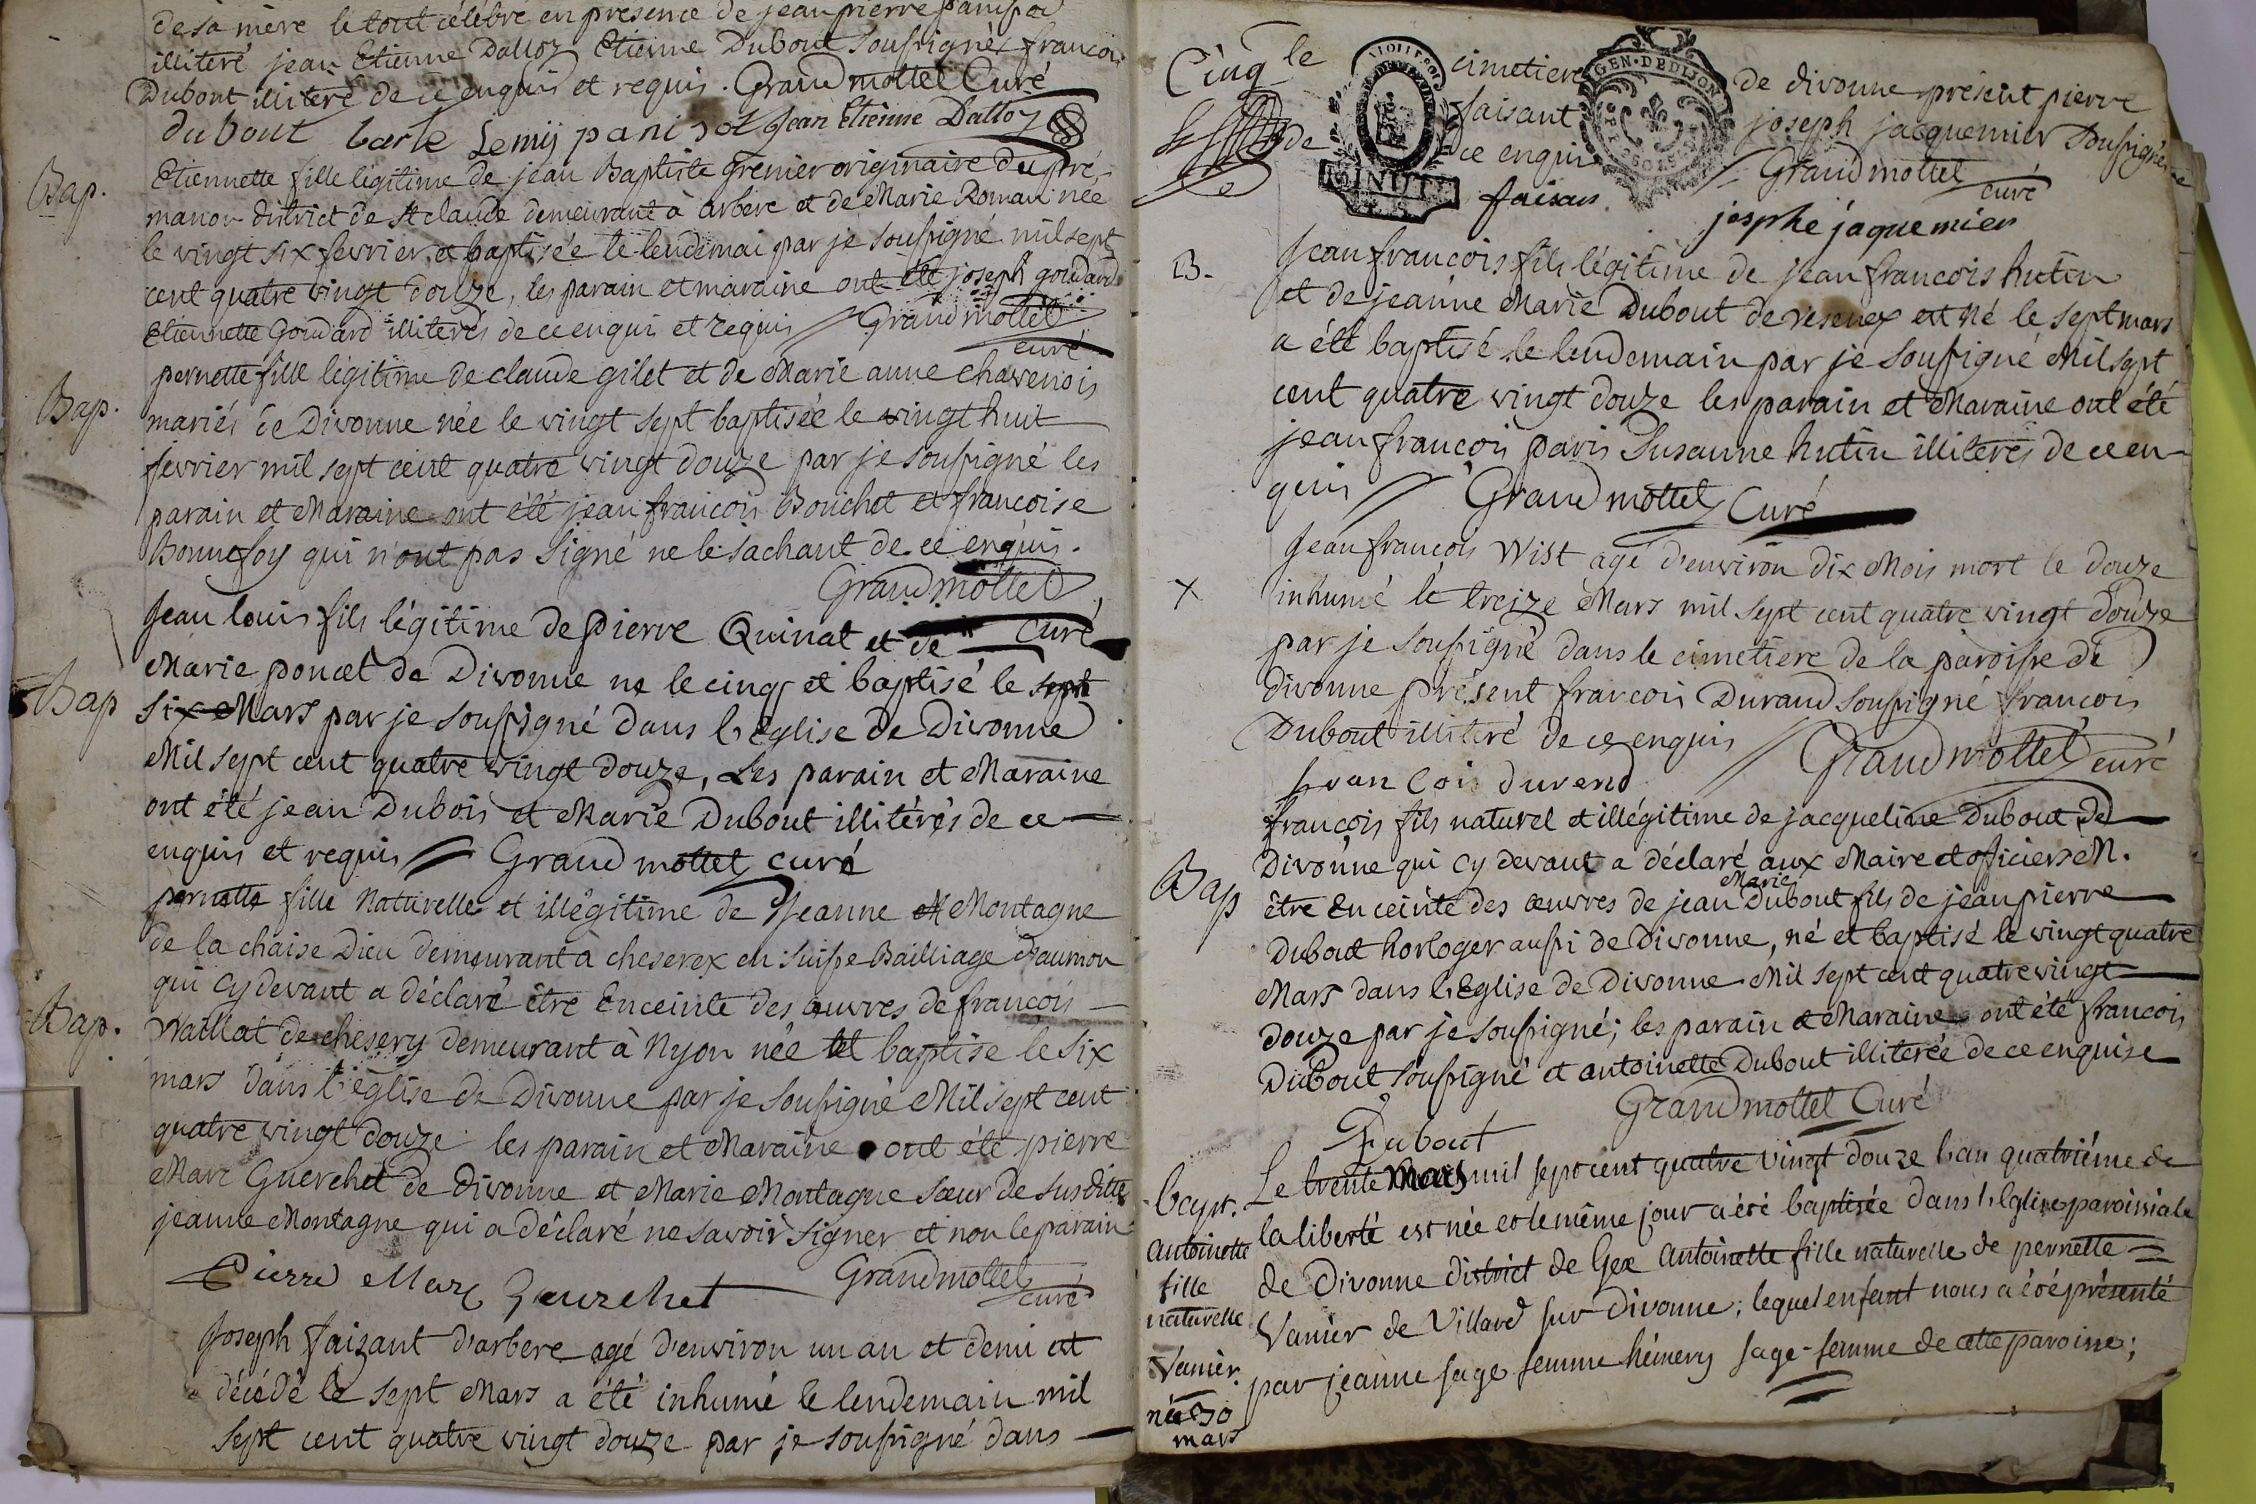 de sa mere le tout célébré en presence de jean pierre panisod
illiteré jean Etienne Dalloz Etienne Dubout soussignés francois
Dubout illiteré de ce enquis et requis. Grandmottet Curé
dubout jean Etienne Dalloz
Bap.
Etiennette fille légitime de jean Baptiste Grenier originaire du pré-
manon district de St claude demeurant à arbere et de Marie Roman née
le vingt six fevrier et baptisée le lendemai par je soussigné mil sept
cent quatre vingt douze, les parain et maraine ont été joseph goudard
Etiennette Goudard illiterés de ce enquis et requis // Grandmottet
curé
Bap.
pernette fille légitime de claude gilet et de Marie anne chavenois
mariés de Divonne née le vingt sept baptisée le vingt huit
fevrier mil sept cent quatre vingt douze par je soussigné les
parain et Maraine ont été jean francois Bouchet et francoise
Bonnefoy qui n'ont pas signé ne le sachant de ce enquis.
Grandmottet
curé
Bap
Jean louis fils légitime de pierre Quinat et de
Marie poncet de Divonne ne le cinq et baptisé le sept
six Mars par je soussigné dans l'Eglise de Divonne
Mil sept cent quatre vingt douze, Les parain et Maraine
ont été jean Dubois et Marie Dubout illitérés de ce
enquis et requis // Grandmottet curé
Bap.
pernette fille Naturelle et illégitime de Jeanne M Montagne
de la chaise Dieu demeurant à cheserex en suisse Bailliage
qui cy devant a déclaré être Enceinte des œuvres de francois
Waillat de chesery demeurant à Nyon née et baptise le six
mars dans l'église de Divonne par je soussigné Mil sept cent
quatre vingt douze les parain et Maraine ont été pierre
Marc Guerchet de Divonne et Marie Montagne sœur de susditte
jeanne Montagne qui a déclaré ne savoir signer et non le parain
Pierre Marc Guerchet Grandmottet
curé
Joseph faizant d'arbere agé d'environ un an et demi est
décédé le sept Mars a été inhumé le lendemain mil
sept cent quatre vingt douze par je soussigné dans
Cinq
le cimetiere de divonne présent pierre
de faisant joseph jacquemier soussigné
ce enquis // Grandmottet
MINUTE
GEN. DE DIJON
faisan curé
josphe jaquemier
B.
Jean francois fils légitime de jean francois hutin
et de jeanne Marie Dubout de vesenex est Né le sept mars
a été baptisé le lendemain par je soussigné Mil sept
cent quatre vingt douze les parain et Maraine ont été
jean francois paris Susanne hutin illiterés de ce en-
quis // Grandmottet Curé
X
Jean francois Wist agé d'environ dix Mois mort le douze
inhumé le treize Mars mil sept cent quatre vingt douze
par je soussigné dans le cimetiere de la paroisse de
divonne présent francois Durand soussigné francois
Dubout illiteré de ce enquis // Grandmottet curé
francois durend
Bap
francois fils naturel et illégitime de jacqueline Dubout de
Divonne qui cy devant a déclaré aux Maire et officiers M.
être Enceinte des œuvres de jean Marie Dubout fils de jean pierre
Dubout horloger aussi de Divonne, né et baptisé le vingt quatre
Mars dans l'Eglise de Divonne Mil sept cent quatre vingt
douze par je soussigné; les parain et Maraine ont été francois
Dubout soussigné et antoinette Dubout illiterée de ce enquise
Grandmottet Curé
Dubout
bapt.
Antoinette
fille
naturelle
Vanier.
née 30
mars
Le trente Mars mil sept cent quatre vingt douze l'an quatriéme de
la liberté est née et le même jour a été baptisée dans l'Eglise paroissiale
de Divonne district de Gex Antoinette fille naturelle de pernette
Vanier de Villard sur Divonne; lequel enfant nous a été présenté
par jeanne sage femme hémery sage-femme de cette paroisse;